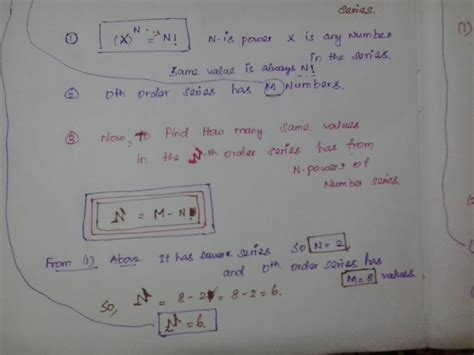 Series.
① (X)^N = N! N-is power X is any Number
in the series.
Same value is always N!
② 0th order series has M Numbers.
③ Now, To Find How many same values
in the N-th order series has from
N-powers of
Number series.
N = M - N!
From (1) Above It has square series so N = 2,
and 0th order series has
M = 8 values.
So, N = 8 - 2! = 8 - 2 = 6.
N = 6.
(1)